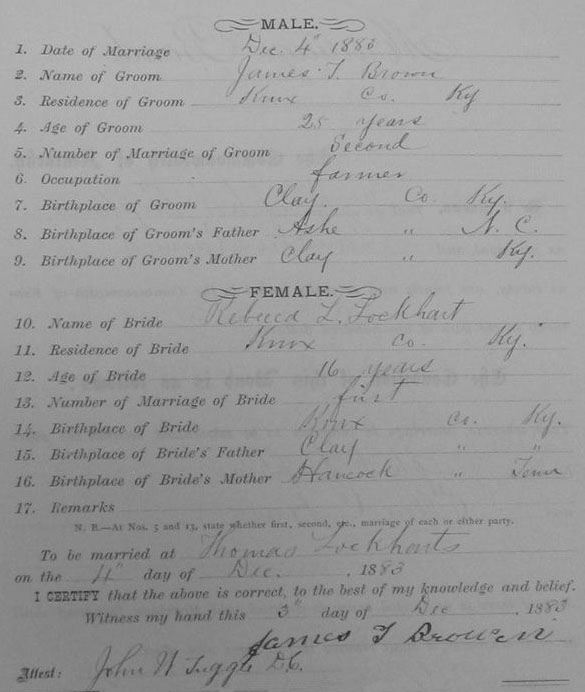 MALE.
1. Date of Marriage Dec. 4th 1883
2. Name of Groom James T. Brown
3. Residence of Groom Knox Co. Ky
4. Age of Groom 25 years
5. Number of Marriage of Groom Second
6. Occupation farmer
7. Birthplace of Groom Clay. Co Ky.
8. Birthplace of Groom's Father Ashe " N. C.
9. Birthplace of Groom's Mother Clay " Ky.
FEMALE.
10. Name of Bride Rebecca L. Lockhart
11. Residence of Bride Knox Co. Ky.
12. Age of Bride 16 years
13. Number of Marriage of Bride first
14. Birthplace of Bride Knox Co. Ky.
15. Birthplace of Bride's Father Clay " "
16. Birthplace of Bride's Mother Hancock "
17. Remarks
N. B.—At Nos. 5 and 13, state whether first, second, etc., marriage of each or either party.
To be married at Thomas Lockharts
on the 4th day of Dec. , 1883
I CERTIFY that the above is correct, to the best of my knowledge and belief.
Witness my hand this 3rd day of Dec , 1883
James T Brown
Attest: John N Tuggle D.C.